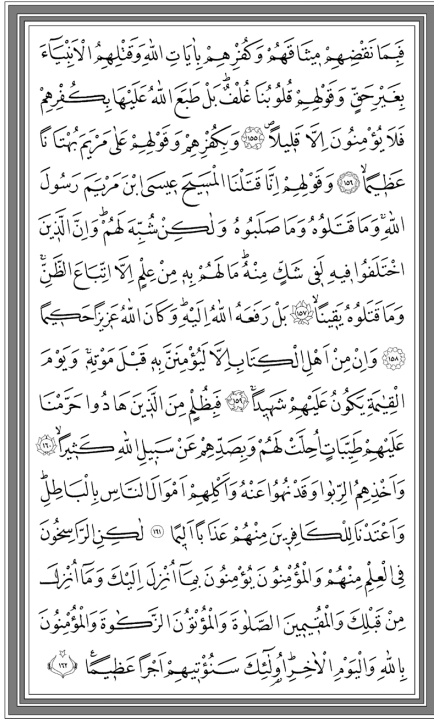 فَبِمَا نَقْضِهِمْ مِيثَاقَهُمْ وَكُفْرِهِمْ بِاٰيَاتِ اللّٰهِ وَقَتْلِهِمُ الْاَنْبِيَٓاءَ
بِغَيْرِ حَقٍّ وَقَوْلِهِمْ قُلُوبُنَا غُلْفٌۜ بَلْ طَبَعَ اللّٰهُ عَلَيْهَا بِكُفْرِهِمْ
فَلَا يُؤْمِنُونَ اِلَّا قَلِيلاًۖ ﴿١٥٥﴾ وَبِكُفْرِهِمْ وَقَوْلِهِمْ عَلٰى مَرْيَمَ بُهْتَانًا
عَظِيمًاۙ ﴿١٥٦﴾ وَقَوْلِهِمْ اِنَّا قَتَلْنَا الْمَسِيحَ عِيسَى ابْنَ مَرْيَمَ رَسُولَ
اللّٰهِۚ وَمَا قَتَلُوهُ وَمَا صَلَبُوهُ وَلٰكِنْ شُبِّهَ لَهُمْۜ وَاِنَّ الَّذِينَ
اخْتَلَفُوا فِيهِ لَفِي شَكٍّ مِنْهُۜ مَا لَهُمْ بِهِ مِنْ عِلْمٍ اِلَّا اتِّبَاعَ الظَّنِّۚ
وَمَا قَتَلُوهُ يَقِينًاۙ ﴿١٥٧﴾ بَلْ رَفَعَهُ اللّٰهُ اِلَيْهِۜ وَكَانَ اللّٰهُ عَزِيزًا حَكِيمًا
﴿١٥٨﴾ وَاِنْ مِنْ اَهْلِ الْكِتَابِ اِلَّا لَيُؤْمِنَنَّ بِهِ قَبْلَ مَوْتِهِۚ وَيَوْمَ
الْقِيٰمَةِ يَكُونُ عَلَيْهِمْ شَهِيدًاۚ ﴿١٥٩﴾ فَبِظُلْمٍ مِنَ الَّذِينَ هَادُوا حَرَّمْنَا
عَلَيْهِمْ طَيِّبَاتٍ اُحِلَّتْ لَهُمْ وَبِصَدِّهِمْ عَنْ سَبِيلِ اللّٰهِ كَثِيرًاۙ ﴿١٦٠﴾
وَاَخْذِهِمُ الرِّبٰوا وَقَدْ نُهُوا عَنْهُ وَاَكْلِهِمْ اَمْوَالَ النَّاسِ بِالْبَاطِلِۜ
وَاَعْتَدْنَا لِلْكَافِرِينَ مِنْهُمْ عَذَابًا اَلِيمًا ﴿١٦١﴾ لٰكِنِ الرَّاسِخُونَ
فِي الْعِلْمِ مِنْهُمْ وَالْمُؤْمِنُونَ يُؤْمِنُونَ بِمَٓا اُنْزِلَ اِلَيْكَ وَمَٓا اُنْزِلَ
مِنْ قَبْلِكَ وَالْمُقِيمِينَ الصَّلٰوةَ وَالْمُؤْتُونَ الزَّكٰوةَ وَالْمُؤْمِنُونَ
بِاللّٰهِ وَالْيَوْمِ الْاٰخِرِۜ اُو۬لٰٓئِكَ سَنُؤْتِيهِمْ اَجْرًا عَظِيمًاۚ ﴿١٦٢﴾